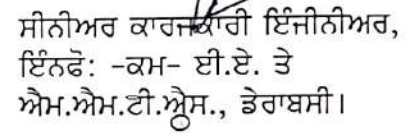 ਸੀਨੀਅਰ ਕਾਰਜਕਾਰੀ ਇੰਜੀਨੀਅਰ,
ਇੰਨਫੋ: -ਕਮ- ਈ.ਏ. ਤੇ
ਐਮ.ਐਮ.ਟੀ.ਐਸ., ਡੇਰਾਬਸੀ।